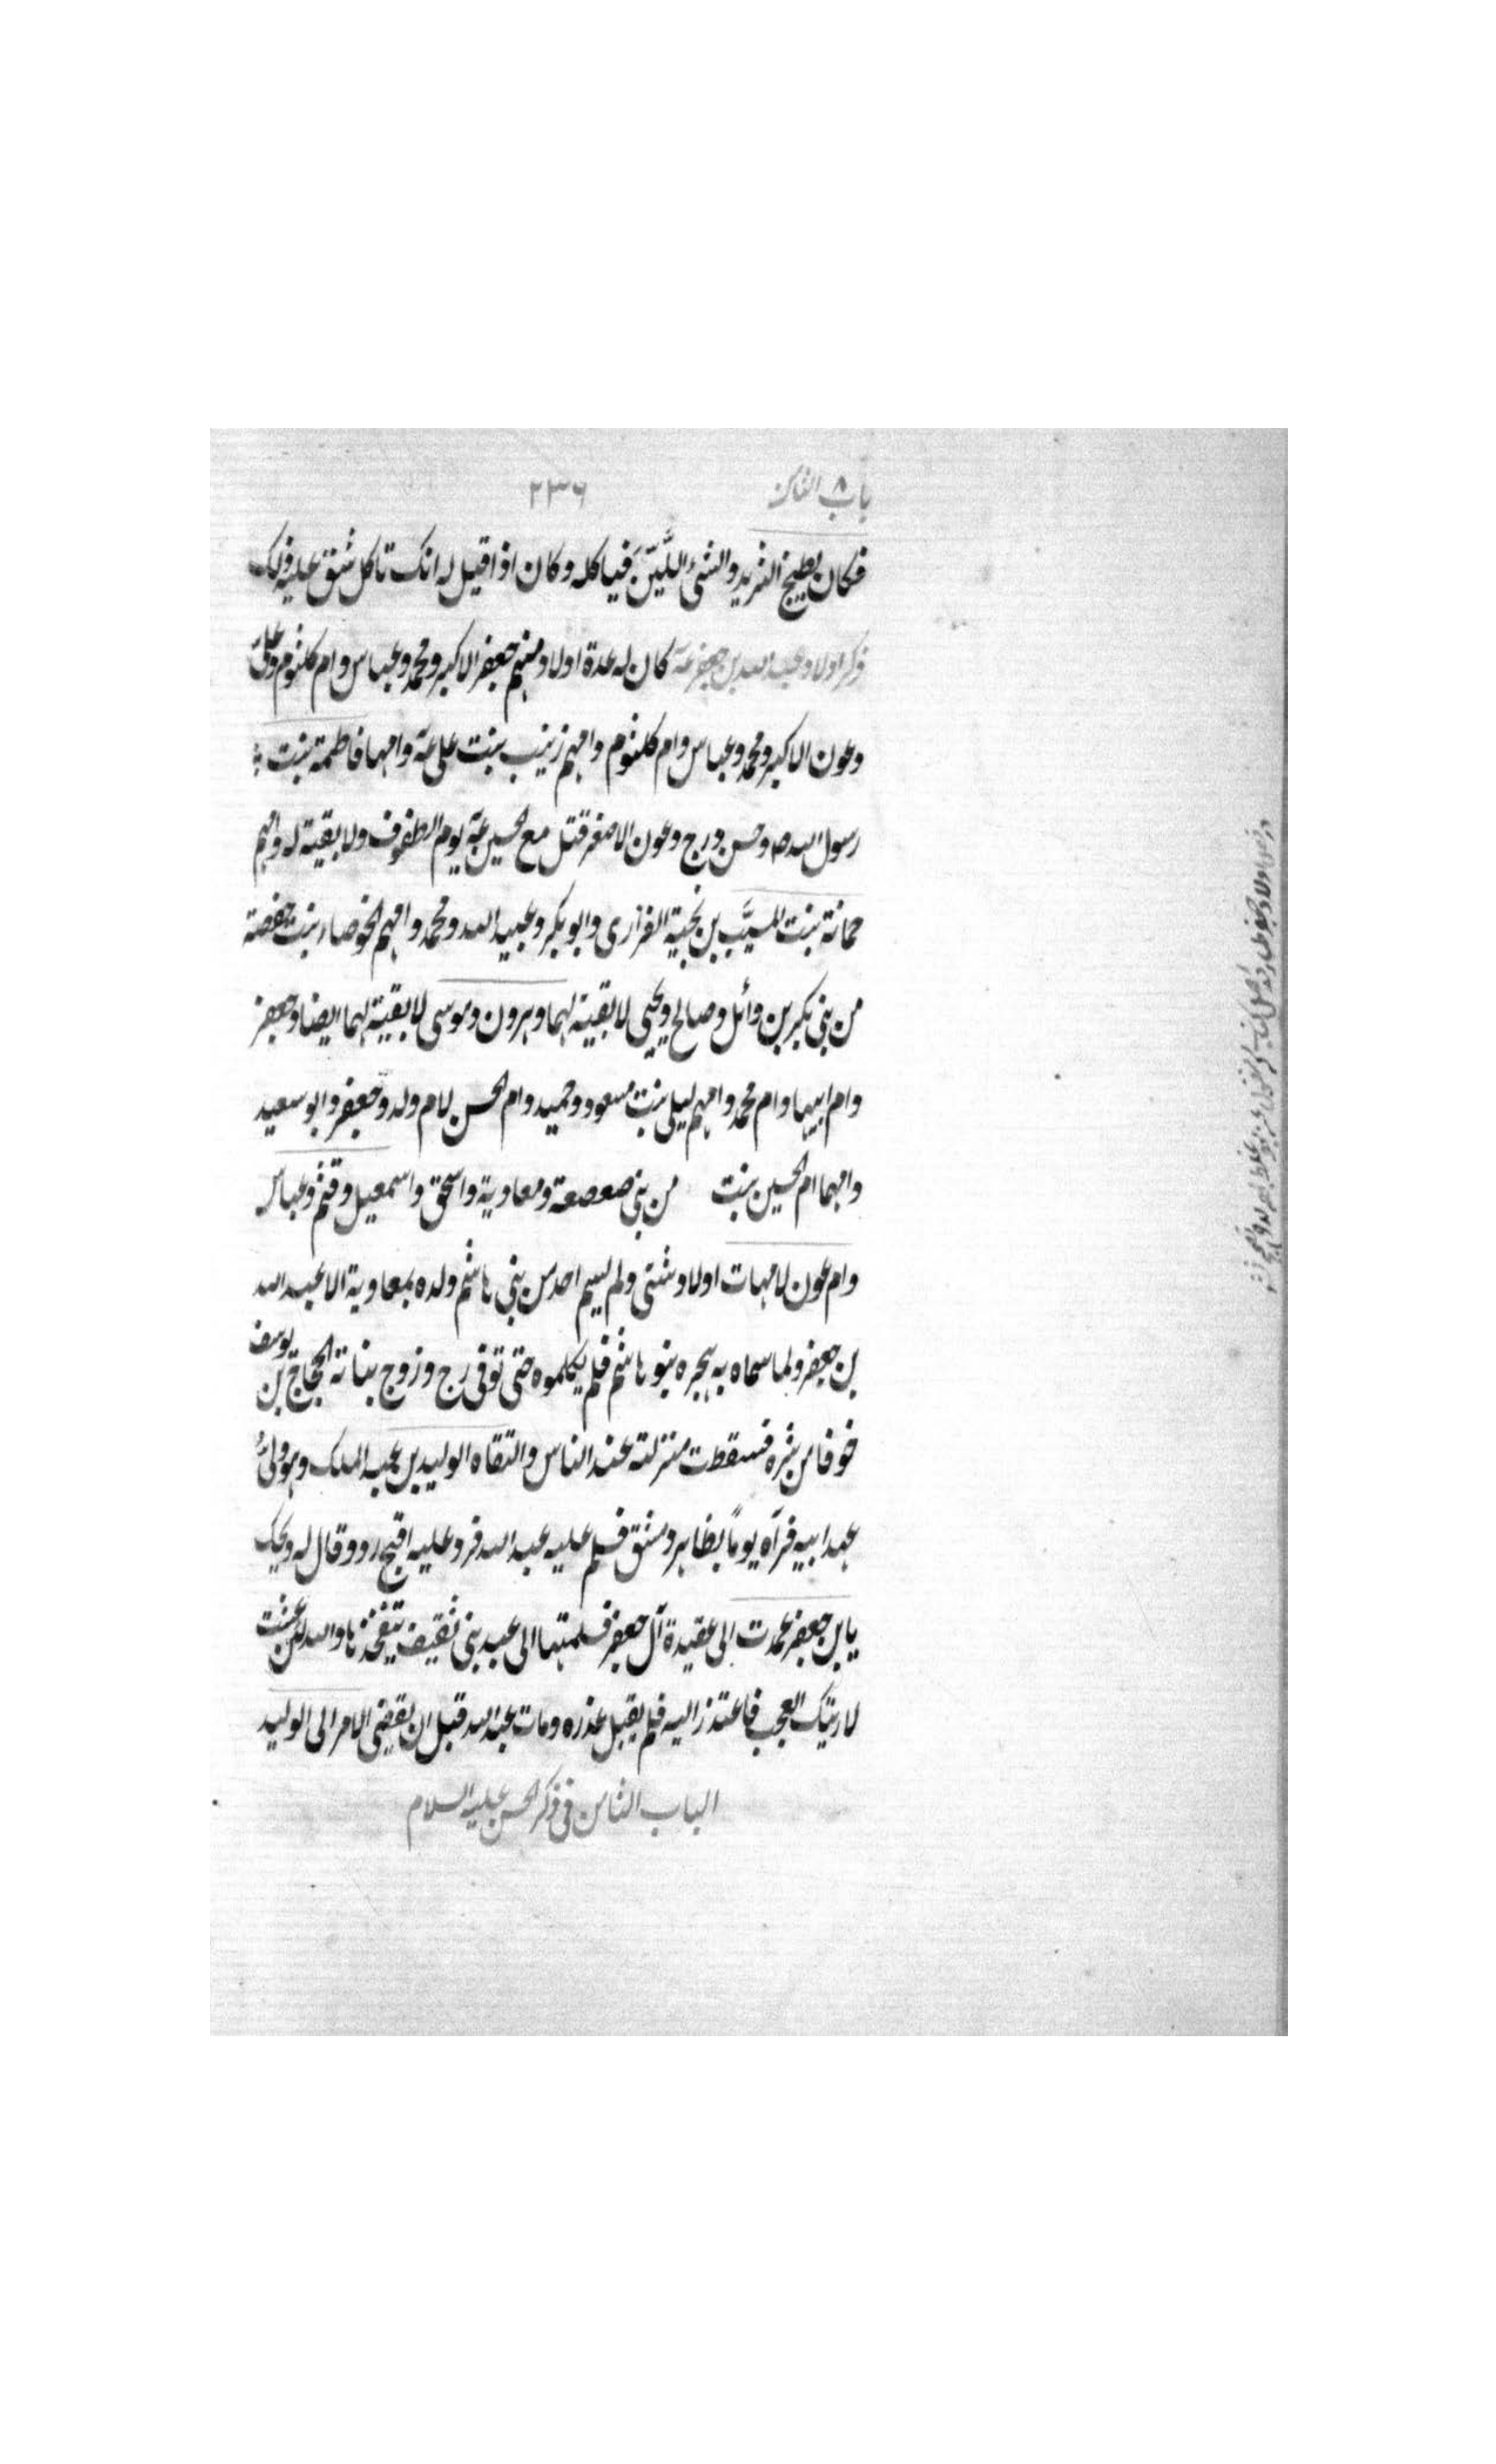 باب ٨ الثامن ٢٣٦
فكان يطبخ الثريد والشئ اللَّيِّن فياكله وكان اذا قيل له انك تاكل شق عليه ذلك
ذكر اولاد عبد الله بن جعفر عـ كان له عدة اولاد منهم جعفر الاكبر ومحمد وعباس وام كلثوم وعلى
وعون الاكبر ومحمد وعباس وام كلثوم وامهم زينب بنت على عـ وامها فاطمة بنت
رسول الله ص وحسن درج وعون الاصغر قتل مع الحسين عـ يوم الطفوف ولا بقية له وامهم
جمانة بنت المسيَّب بن نجبة الفزارى وابو بكر وعبيد الله ومحمد وامهم الخوصاء بنت حفصة
من بنى بكر بن وائل وصالح ويحيى لا بقية لهما وهرون وموسى لا بقية لهما ايضا وجعفر
وام ابيها وام محمد وامهم ليلى بنت مسعود وحميد وام الحسن لام ولد وجعفر وابو سعيد
وامهما ام الحسين بنت من بنى صعصعة ومعاوية واسحق واسمعيل وقثم وعباس
وام عون لامهات اولاد شتى ولم يسم احد من بنى هاشم ولده بمعاوية الا عبد الله
بن جعفر ولما سماه به هجره بنو هاشم فلم يكلموه حتى توفى رح وزوج بناته الحجاج بن يوسف
خوفا من شره فسقطت منزلته عند الناس والتقاه الوليد بن عبد الملك وهو ولىُّ
عهد ابيه فرآه يوماً بظاهر دمشق فسلم عليه عبد الله فرد عليه اقبح رد وقال له ويحك
يا بن جعفر عمدت الى عقيدة آل جعفر فسلمتها الى عبد بنى ثقيف يتفخذها والله لئن عشت
لاريتك العجب فاعتذر اليه فلم يقبل عذره ومات عبد الله قبل ان يفضى الامر الى الوليد
الباب الثامن فى ذكر الحسن عليه السلام